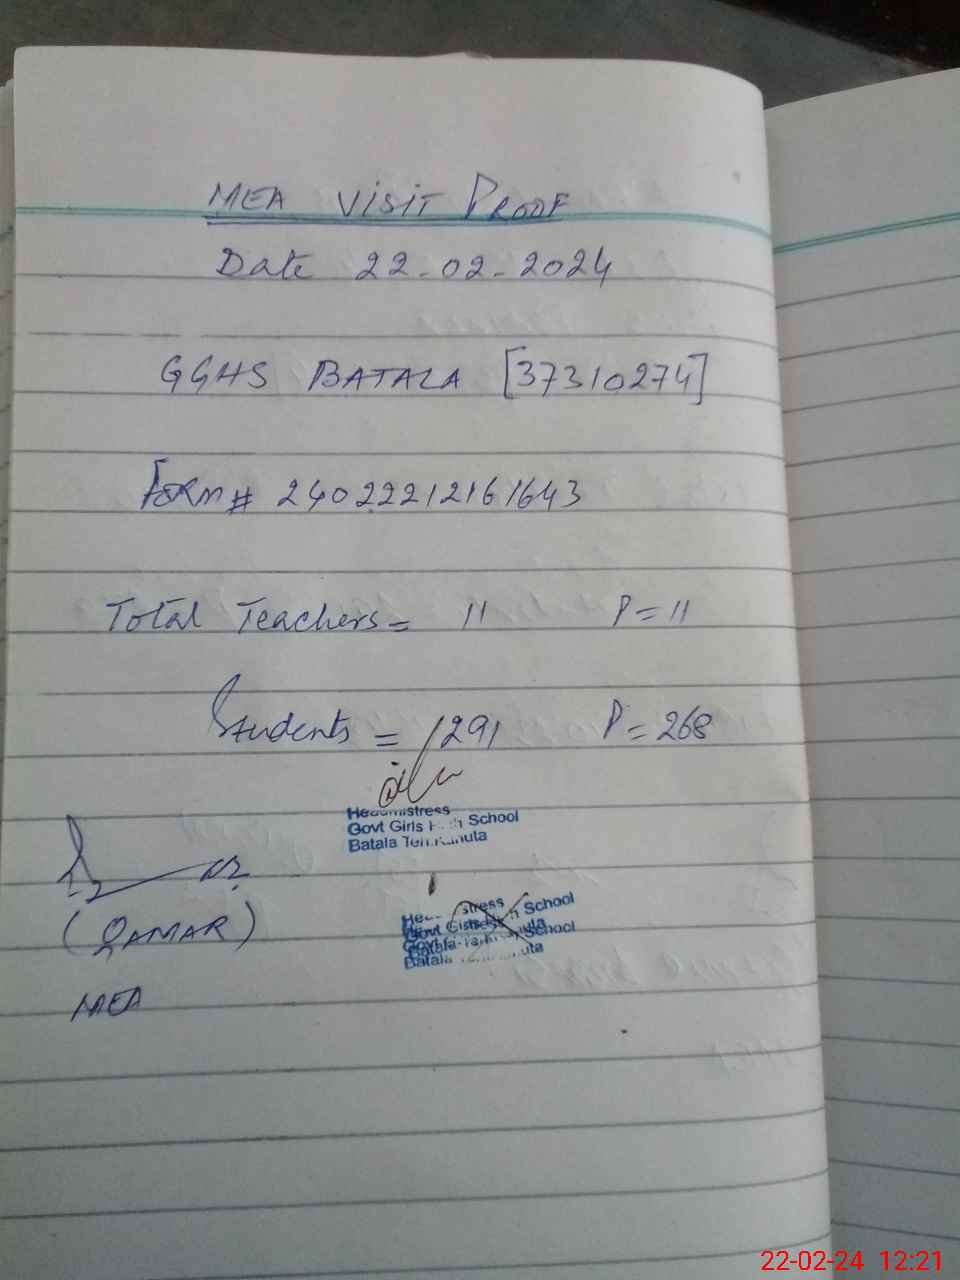 MEA VISIT PROOF
Date 22-02-2024
GGHS BATALA [37310274]
Form # 24022212161643
Total Teachers = 11 P = 11
Students = 291 P = 268
Headmistress
Govt Girls High School
Batala Teh. Kahuta
(QAMAR)
MEA
Govt Girls School
Batala
22-02-24 12:21